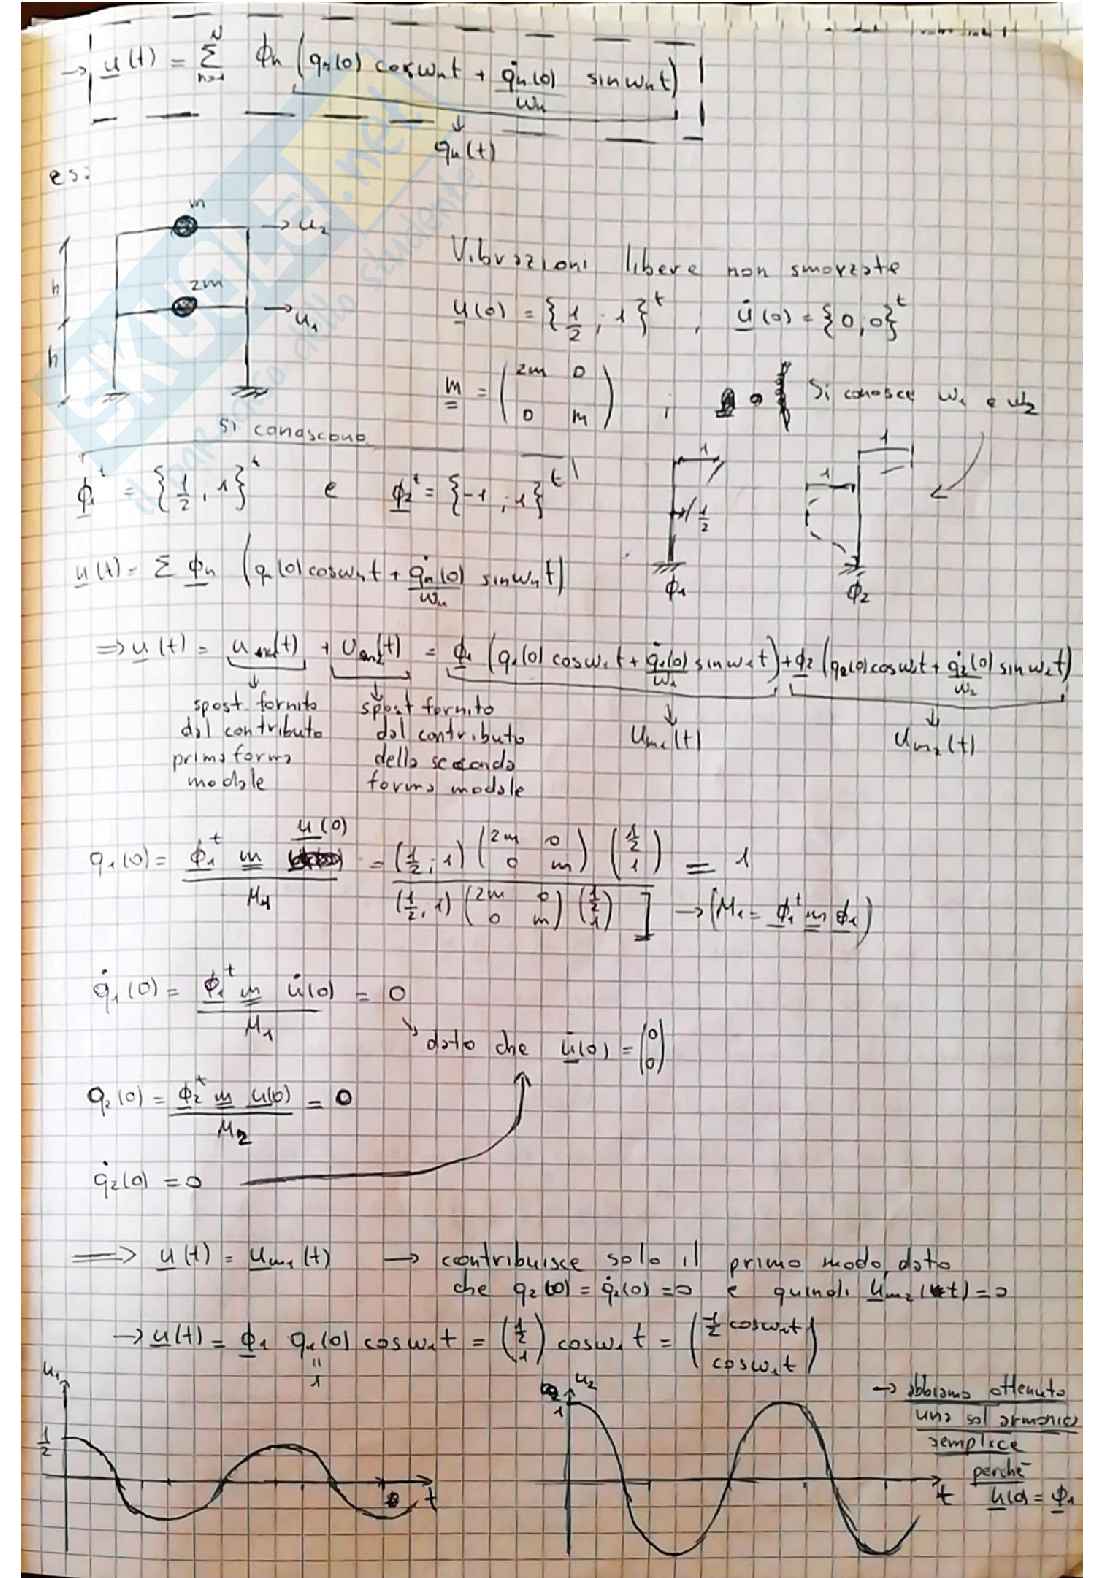 → u(t) = Σ_{n=1}^{N} ϕn (qn(0) cosωnt + q̇n(0)/ωn sinωnt)
qn(t)
es:
m
→ u2
h
2m
→ u1
h
Vibrazioni libere non smorzate
u(0) = {1/2 ; 1}^t , u̇(0) = {0,0}^t
m = (2m 0
0 m) ; Si conosce ω1 e ω2
Si conoscono
ϕ1^t = {1/2, 1}^t e ϕ2^t = {-1 ; 1}^t
1
1/2
ϕ1
1
1
ϕ2
u(t) = Σ ϕn (qn(0) cosωnt + q̇n(0)/ωn sinωnt)
⇒ u(t) = um1(t) + um2(t) = ϕ1 (q1(0) cosω1t + q̇1(0)/ω1 sinω1t) + ϕ2 (q2(0) cosω2t + q̇2(0)/ω2 sinω2t)
spost fornito
dal contributo
prima forma
modale
spost fornito
dal contributo
della seconda
forma modale
um1(t)
um2(t)
q1(0) = ϕ1^t m u(0) / M1 = (1/2 ; 1) (2m 0 0 m) (1/2 1) / (1/2, 1) (2m 0 0 m) (1/2 1) = 1
→ (M1 = ϕ1^t m ϕ1)
q̇1(0) = ϕ1^t m u̇(0) / M1 = 0
dato che u̇(0) = (0 0)
q2(0) = ϕ2^t m u(0) / M2 = 0
q̇2(0) = 0
⇒ u(t) = um1(t) → contribuisce solo il primo modo, dato
che q2(0) = q̇2(0) = 0 e quindi um2(t) = 0
→ u(t) = ϕ1 q1(0) cosω1t = (1/2 1) cosω1t = (1/2 cosω1t cosω1t)
"
1
u1
1/2
t
u2
1
t
→ abbiamo ottenuto
una sol armonica
semplice
perché
u(0) = ϕ1
SKUOLA.net